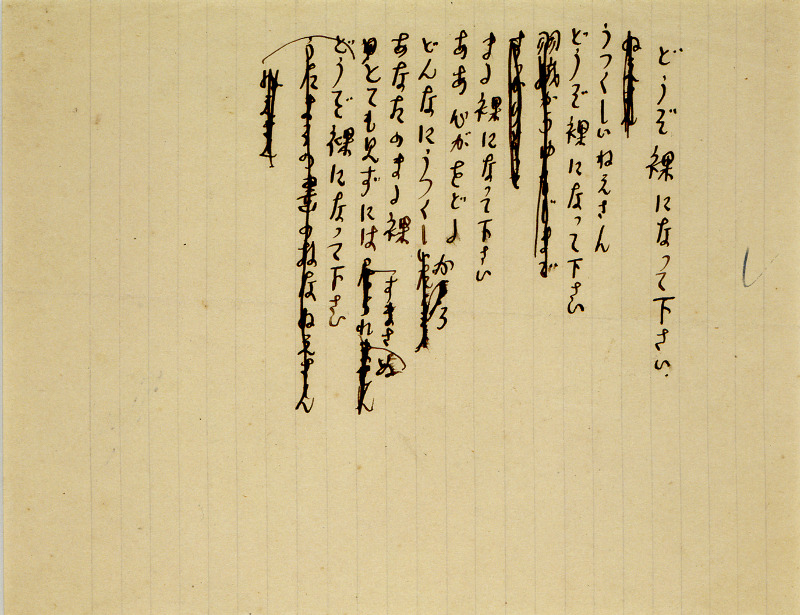 どうぞ裸になって下さい。
うつくしいねえさん
どうぞ裸になって下さい
まる裸になって下さい
ああ心がをどる
どんなにうつくしかろ
あなたのまる裸
見とても見ずには
すまされぬ
どうぞ裸になって下さい